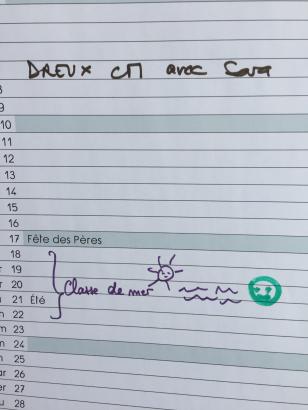 DREUX CM avec Sara
8
9
10
11
12
13
14
15
16
17 Fête des Pères
18
19
20 Classe de mer
21 Été
22
23
24
25
26
27
28